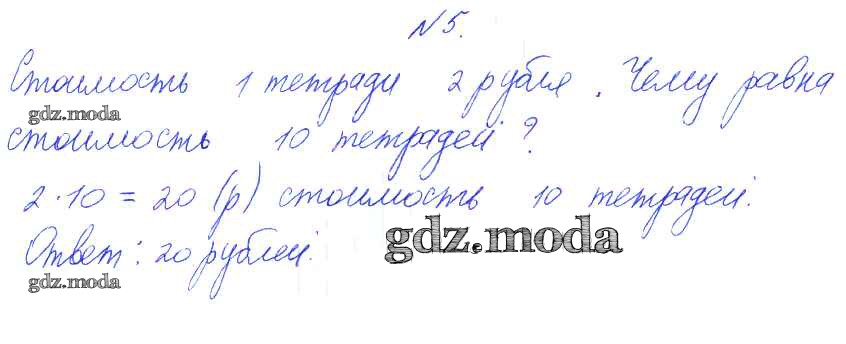 N 5.
Стоимость 1 тетради 2 рубля. Чему равна
gdz.moda
стоимость 10 тетрадей?
2·10 = 20 (р) стоимость 10 тетрадей.
Ответ: 20 рублей.
gdz.moda
gdz.moda